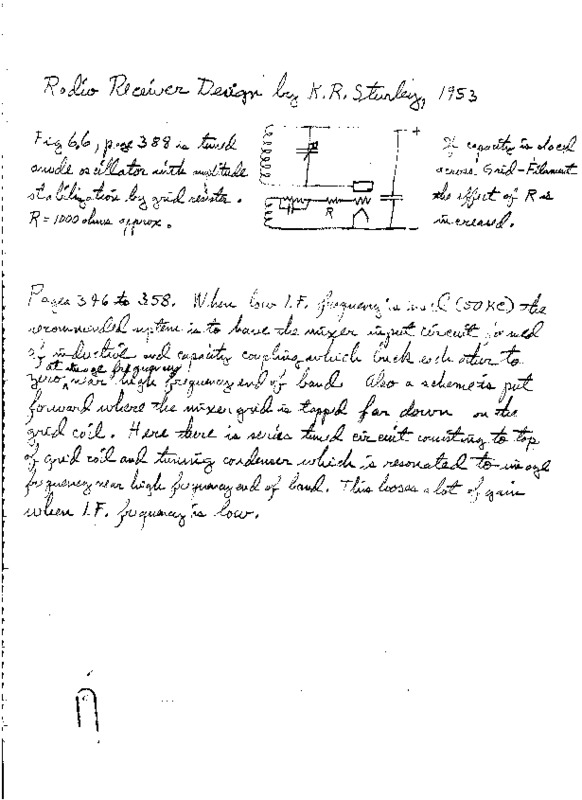 Radio Receiver Design by K.R. Sturley, 1953
Fig 6.6, page 388 is tuned
anode oscillator with amplitude
stabilization by grid resistor.
R = 1000 ohms approx.
+
R
If capacity is placed
across Grid-Filament
the effect of R is
increased.
Pages 346 to 358. When low I.F. frequency is used (50KC) the
recommended system is to have the mixer input circuit formed
of inductive and capacity coupling which buck each other to
at image frequency
zero, near high frequency end of band. Also a scheme is put
forward where the mixer grid is tapped far down on the
grid coil. Here there is series tuned circuit consisting to top
of grid coil and tuning condenser which is resonated to image
frequency near high frequency end of band. This looses a lot of gain
when I.F. frequency is low.